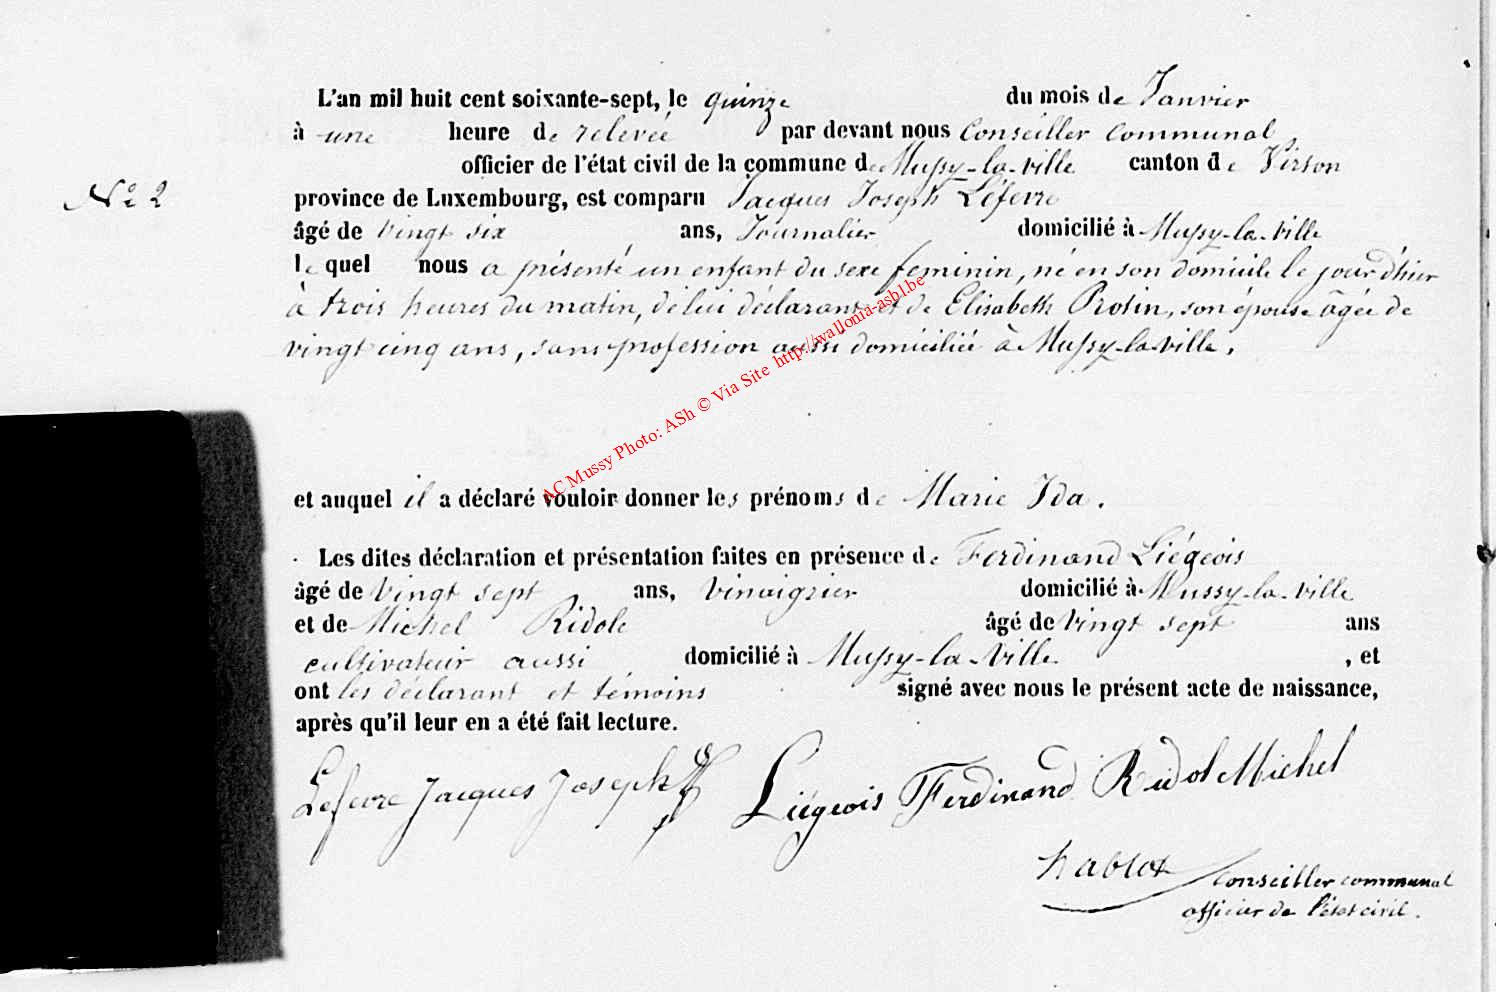 L'an mil huit cent soixante-sept, le quinze du mois de Janvier
à une heure de relevée par devant nous Conseiller Communal,
officier de l'état civil de la commune de Mussy-la-ville canton de Virton
N° 2
province de Luxembourg, est comparu Jacques Joseph Léfevre
âgé de vingt six ans, Journalier domicilié à Mussy-la-Ville
lequel nous a présenté un enfant du sexe feminin, né en son domicile le jour d'hier
à trois heures du matin, de lui déclarant et de Elisabeth Protin, son épouse âgée de
vingt cinq ans, sans profession aussi domiciliée à Mussy-la-ville.
AC Mussy Photo: ASh © Via Site http://wallonia-asbl.be
et auquel il a déclaré vouloir donner les prénoms de Marie Ida.
Les dites déclaration et présentation faites en présence de Ferdinand Liégeois
âgé de Vingt sept ans, vinaigrier domicilié à Mussy-la-Ville
et de Michel Ridole âgé de Vingt sept ans
cultivateur aussi domicilié à Mussy-la-Ville , et
ont les déclarant et témoins signé avec nous le présent acte de naissance,
après qu'il leur en a été fait lecture.
Lefevre Jacques Joseph Liégeois Ferdinand Ridol Michel
hablot Conseiller communal
officier de l'état civil.